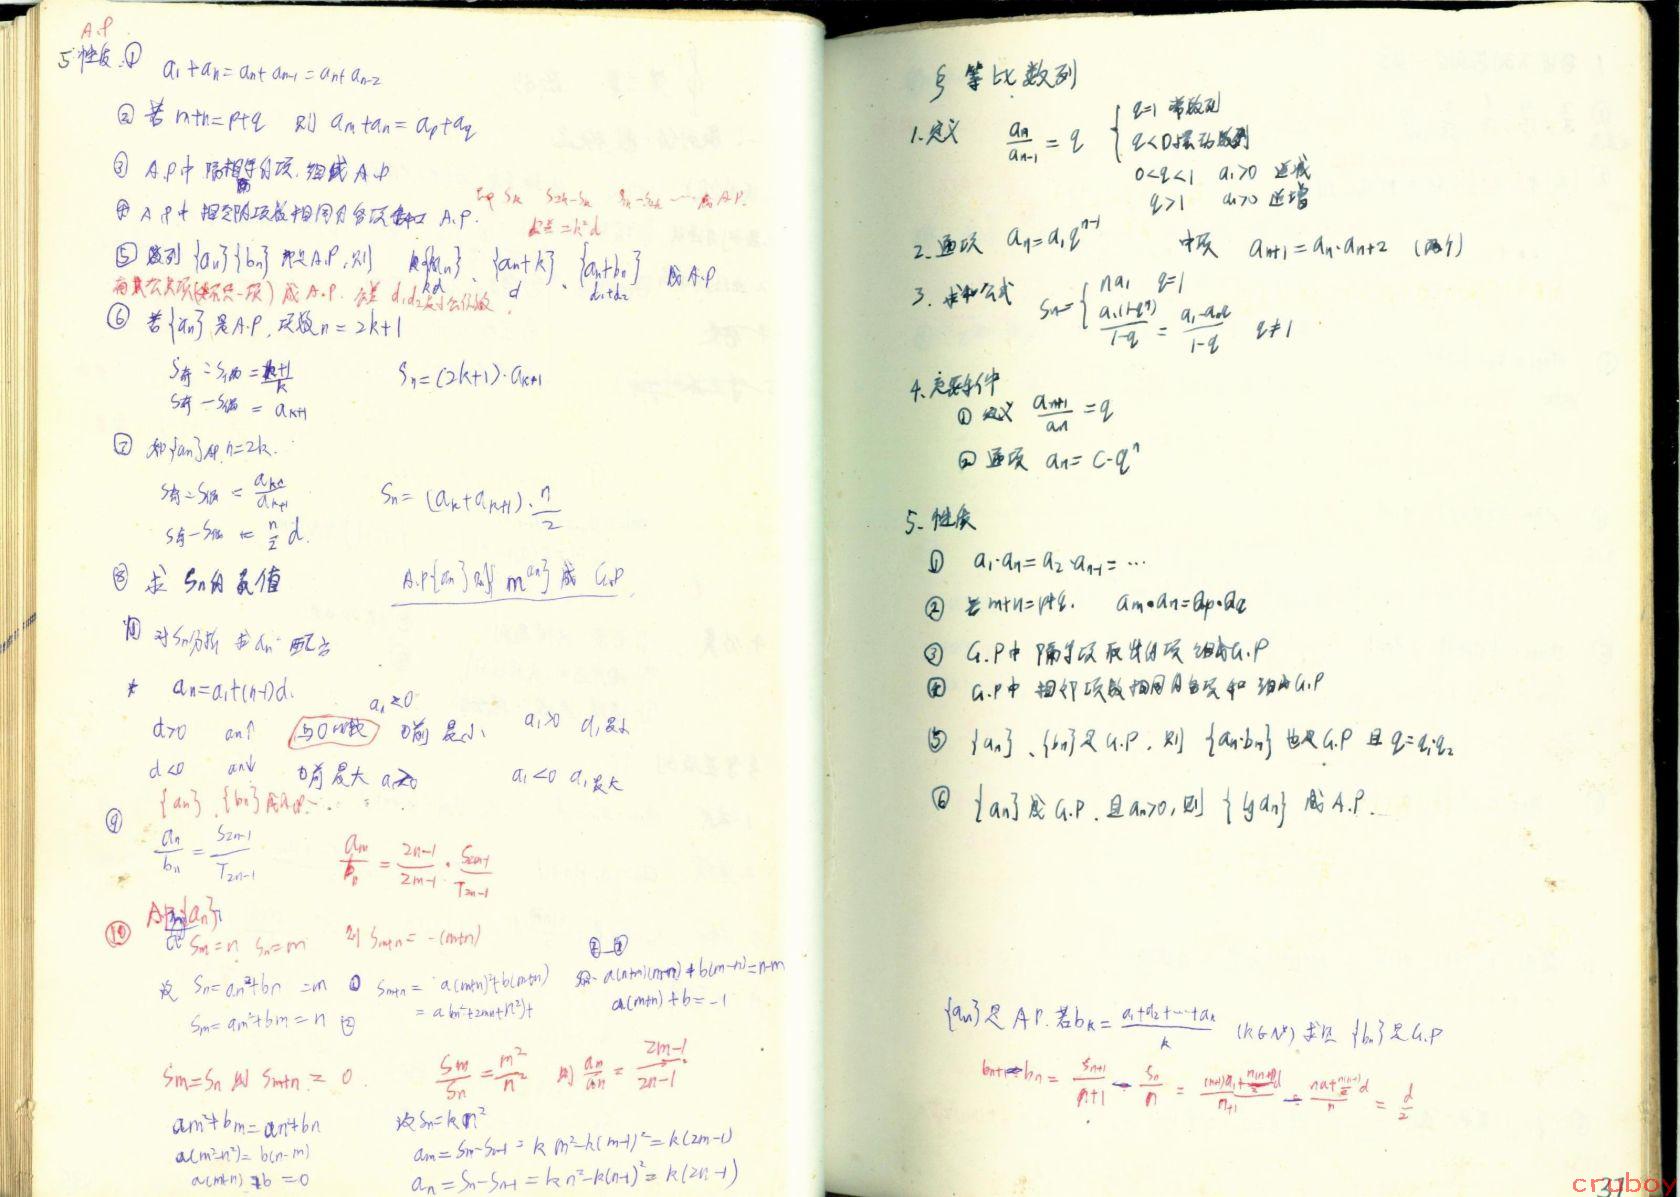 A.P
5 性质 ①
a₁+aₙ=aₙ+aₙ₋₁=aₙ+aₙ₋₂
② 若 m+n=p+q 则 aₘ+aₙ=aₚ+a_q
③ A.P中 隔相等的项,组成 A.P
④ A.P中 相邻项数相同的各项和 A.P.
Sₖ S₂ₖ-Sₖ S₃ₖ-S₂ₖ … 成 A.P.
公差=k²d
⑤ 数列 {aₙ}{bₙ} 都是A.P,则 {kaₙ}、{aₙ+k}、{aₙ+bₙ} 成A.P
kd d d₁+d₂
⑥ 若{aₙ}是A.P,项数n=2k+1
S奇÷S偶=k+1/k Sₙ=(2k+1)·aₖ₊₁
S奇-S偶=aₖ₊₁
⑦ {aₙ} n=2k.
Sₙ=(aₖ+aₖ₊₁)·n/2
S奇-S偶= n/2 d.
⑧ 求 Sₙ的最值 A.P{aₙ} 则{m^aₙ}成 G.P
对Sₙ分析 求aₙ 配方
* aₙ=a₁+(n-1)d.
d>0 aₙ↑ 与0比较 前最小 a₁>0 a₁最小
d<0 aₙ↓ 前最大 a₁<0 a₁最大
{aₙ}、{bₙ}成A.P
⑨ aₙ/bₙ=S₂ₙ₋₁/T₂ₙ₋₁ aₘ/bₙ=2n-1/2m-1·S₂ₘ₋₁/T₂ₙ₋₁
⑩ A.P{aₙ}
Sₘ=n Sₙ=m 则 Sₘ₊ₙ=-(m+n)
设 Sₙ=an²+bn=m ① Sₘ₊ₙ=a(m+n)²+b(m+n)
Sₘ=am²+bm=n ② =a(m²+2mn+n²)+
②-①
a(m+n)(m-n)+b(m-n)=n-m
a(m+n)+b=-1
Sₘ=Sₙ 则 Sₘ₊ₙ=0. Sₘ/Sₙ=m²/n² 则 aₘ/aₙ=2m-1/2n-1
am²+bm=an²+bn 设Sₙ=kn²
a(m²-n²)=b(n-m) aₘ=Sₘ-Sₘ₋₁=km²-k(m-1)²=k(2m-1)
a(m+n)+b=0 aₙ=Sₙ-Sₙ₋₁=kn²-k(n-1)²=k(2n-1)
§ 等比数列
1.定义 aₙ/aₙ₋₁=q { q=1 常数列
q<0 摆动数列
0<q<1 a₁>0 递减
q>1 a₁>0 递增
2.通项 aₙ=a₁qⁿ⁻¹ 中项 aₙ₊₁=aₙ·aₙ₊₂ (两个)
3.求和公式 Sₙ={ na₁ q=1
a₁(1-qⁿ)/1-q=a₁-aₙq/1-q q≠1
4.充要条件
① 定义 aₙ₊₁/aₙ=q
② 通项 aₙ=C·qⁿ
5.性质
① a₁·aₙ=a₂·aₙ₋₁=…
② 若m+n=p+q. aₘ·aₙ=aₚ·a_q
③ G.P中 隔等项取出的项 组成G.P
④ G.P中 相邻项数相同的各项和 组成G.P
⑤ {aₙ}、{bₙ}是G.P,则 {aₙ·bₙ}也是G.P 且q=q₁·q₂
⑥ {aₙ}成G.P.且aₙ>0,则 {lgaₙ} 成A.P.
{aₙ}是 A.P.若bₖ=a₁+a₂+…+aₖ/k (k∈N*) 求证 {bₙ}是G.P
bₙ₊₁-bₙ=Sₙ₊₁/n+1-Sₙ/n=(n+1)a₁+n(n+1)/2 d/n+1-na₁+n(n-1)/2 d/n=d/2
37
cruboy